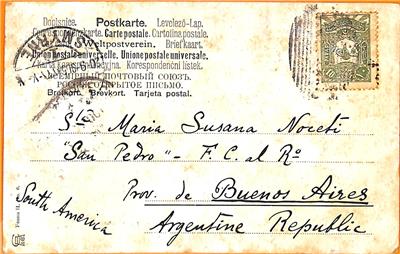 Dopisnice. Postkarte. Levelező-Lap.
Correspondenzkarte. Carte postale. Cartolina postale.
Weltpostverein. Briefkaart.
Union postale universelle. Unione postale universale.
Korespondenční listek.
ВСЕМІРНЫЙ ПОЧТОВЫЙ СОЮЗЪ.
ОТКРЫТОЕ ПИСЬМО.
Brefkort. Brevkort. Tarjeta postal.
Sta Maria Susana Noceti
"San Pedro" - F. C. al Ro
Prov. de Buenos Aires
South America
Argentine Republic